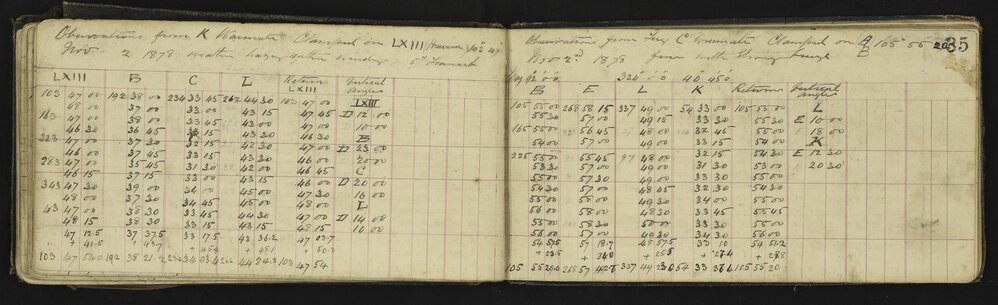 Observations from K Waimate Clamped on LXIII
Nov 2 1878 weather windy
5" Transit
LXIII B C L Return LXIII Vertical Angles
103 47 00 192 38 00 234 33 45 262 44 30 103 47 00 LXIII
48 00 37 00 33 00 43 15 47 45 D 12 00
163 47 00 38 00 33 45 43 00 47 00 10 00
46 30 36 45 15 43 00 46 30 B
223 47 00 37 30 32 15 42 30 47 00 D 23 00
46 00 37 45 33 15 43 30 46 00 20 00
283 47 00 35 45 31 30 42 00 46 45 C
46 15 37 15 33 00 43 15 46 15
343 47 30 39 00 45 00 47 30 D 20 00
48 00 37 30 34 45 45 00 16 00
43 47 00 38 30 33 45 44 30 47 00 L
48 15 38 30 33 15 43 15 48 15 D 14 00
10 00
47 12.5 37 37.5 33 17.5 43 36.2 47 03.7
+ 41.5 + 43.7 + 48.1 + 50.3
103 47 54.0 192 38 21.2 234 34 262 44 24.3 103 47 54
35
Observations from Trig C Waimate Clamped on 105° 55' 20"
Nov 2nd 1878 fine with strong
324 0 0 40 45 0
B E L K Return Vertical Angles
105 55 00 268 58 15 337 49 00 54 33 00 105 55 00 L
55 30 57 00 49 15 33 30 55 30 E 10 00
165 55 00 56 45 48 00 32 45 55 00 18 00
54 00 57 00 49 30 33 15 54 00 K
225 55 00 55 45 97 48 00 32 15 54 30 E 12 30
53 30 57 00 49 00 31 30 53 00 20 30
55 00 57 30 49 00 33 30 55 00
54 30 57 00 48 45 32 30 54 30
55 00 57 00 49 00 33 00 55 00
56 00 58 00 48 30 33 45 55 45
55 00 58 30 50 00 33 30 55 00
56 00 57 00 49 30 34 00 56 00
54 57.5 57 18.7 48 57.5 33 10 54 51.2
+ 22.5 + 24.0 + 25.5 + 27.4 + 28.8
105 55 20.0 268 57 42.7 337 49 23.0 54 33 37.4 105 55 20